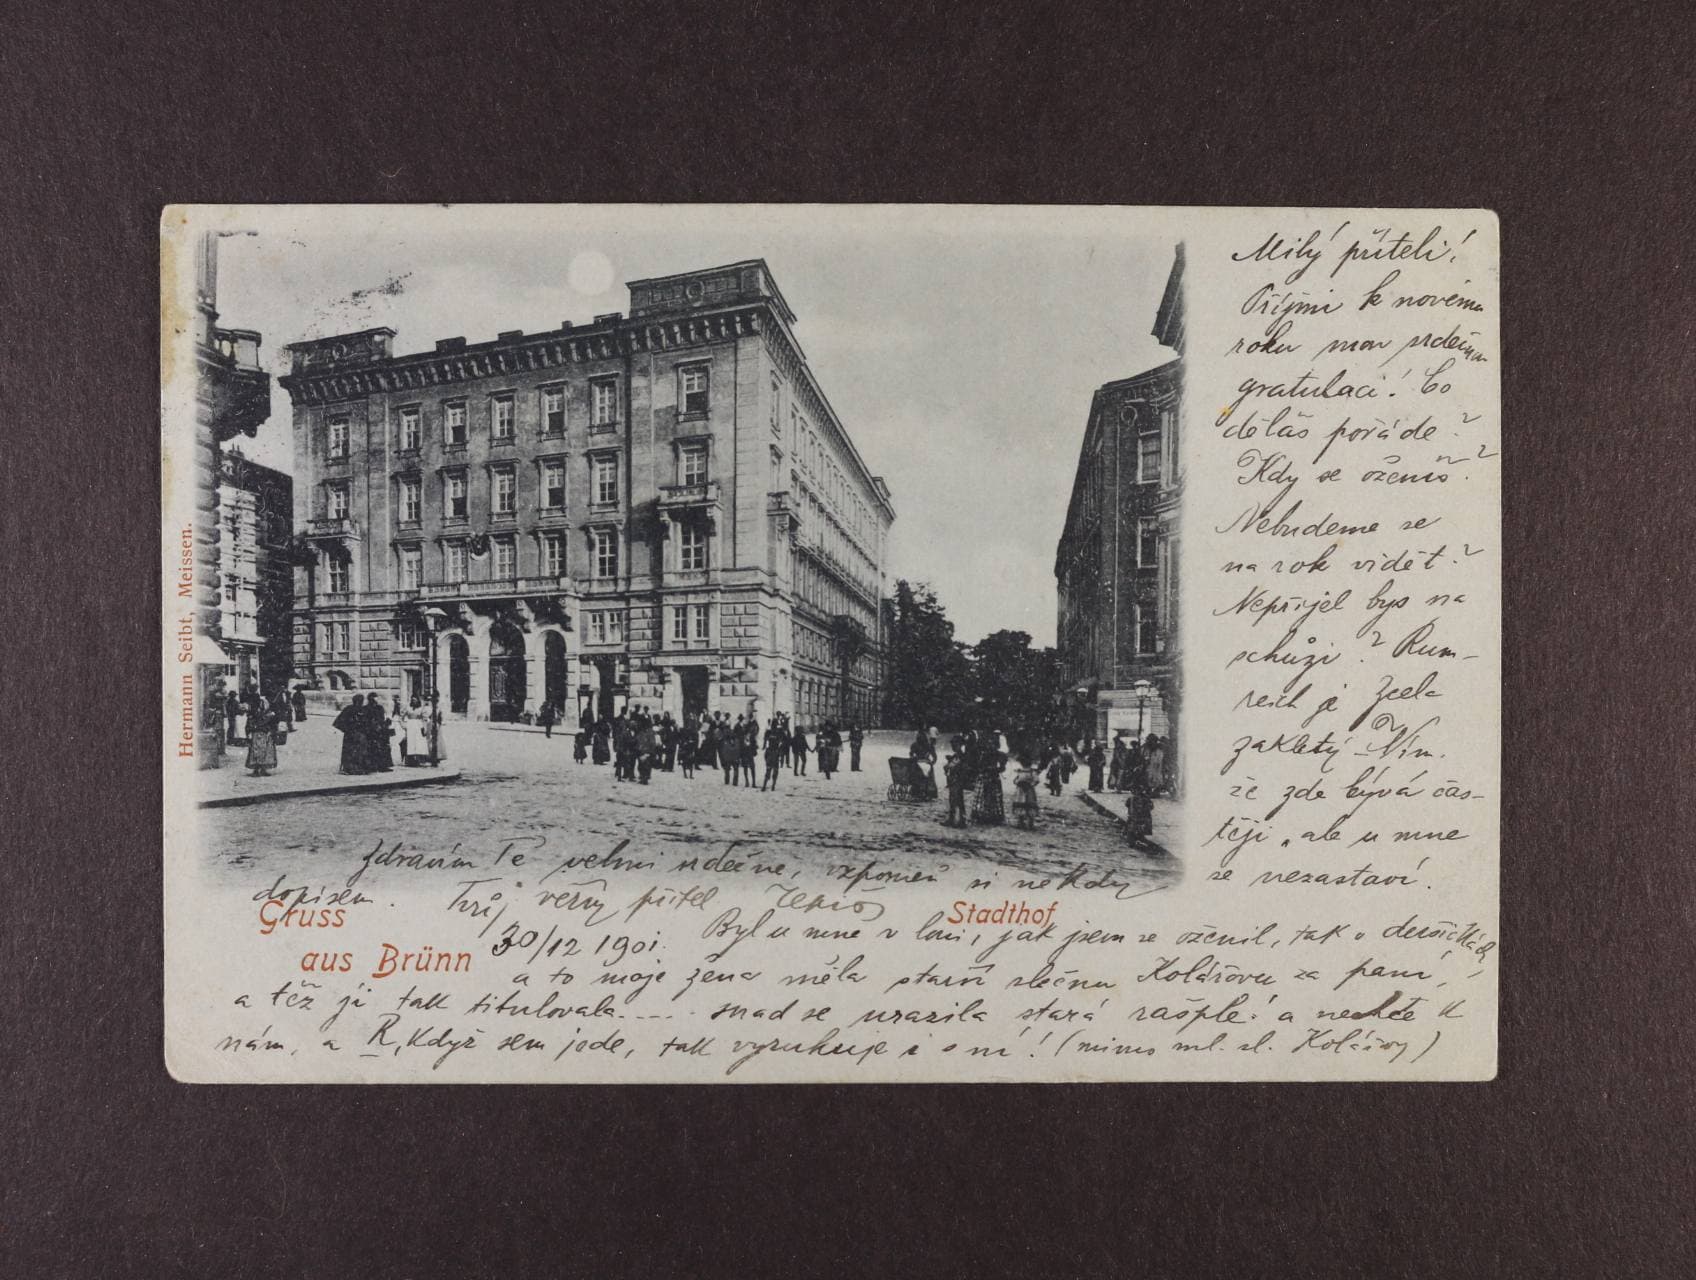 Milý příteli!
Přijmi k novému
roku mou srdečnou
gratulaci! Co
děláš pořáde?
Kdy se oženíš?
Nebudeme se
na rok vidět?
Nepřijel bys na
schůzi? Rum-
reich je zcela
zakletý - Vím.
že zde bývá čas-
těji, ale u mne
se nezastaví.
Zdravím Tě velmi srdečne, vzpomeň si někdy
dopisem. Tvůj věrný přítel
Gruss
aus Brünn
Stadthof
30/12 1901. Byl u mne v loni, jak jsem se oženil, tak o
a to moje žena měla starší slečnu Kolářovu za paní,
a též ji tak titulovala.... snad se urazila stará rašple! a nechce k
nám, a R, když sem jede, tak vyzukuje i s ní! (mimo ml. sl. Kolářovy)
Hermann Seibt, Meissen.